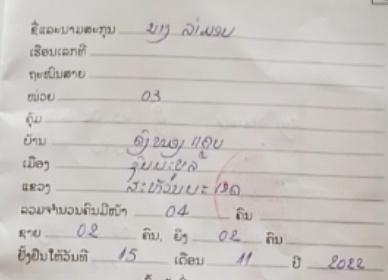 ຊື່ແລະນາມສະກຸນ ນາງ
ເຮືອນເລກທີ
ຖະໜົນສາຍ
ໜ່ວຍ 03
ຄຸ້ມ
ບ້ານ
ເມືອງ
ແຂວງ ສະຫວັນນະເຂດ
ລວມຈຳນວນຄົນມີໜ້າ 04 ຄົນ
ຊາຍ 02 ຄົນ, ຍິງ 02 ຄົນ
ຢັ້ງຢືນໃຫ້ວັນທີ 15 ເດືອນ 11 ປີ 2022